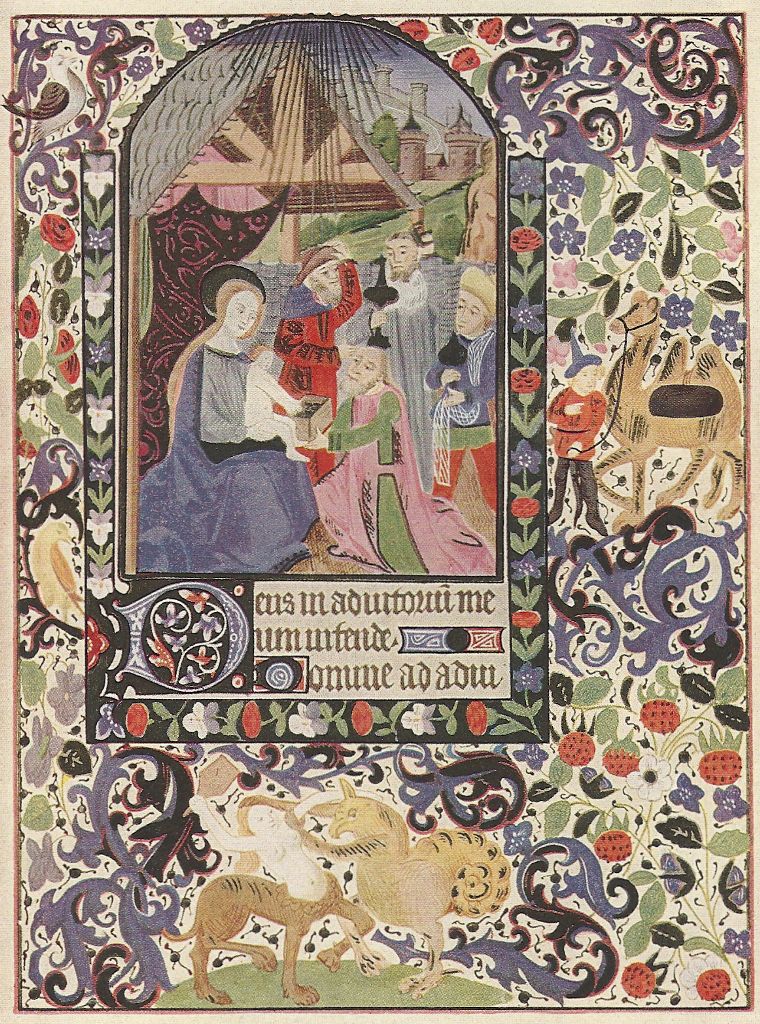 Deus in adiutoriũ me
um intende.
Domine ad adiu